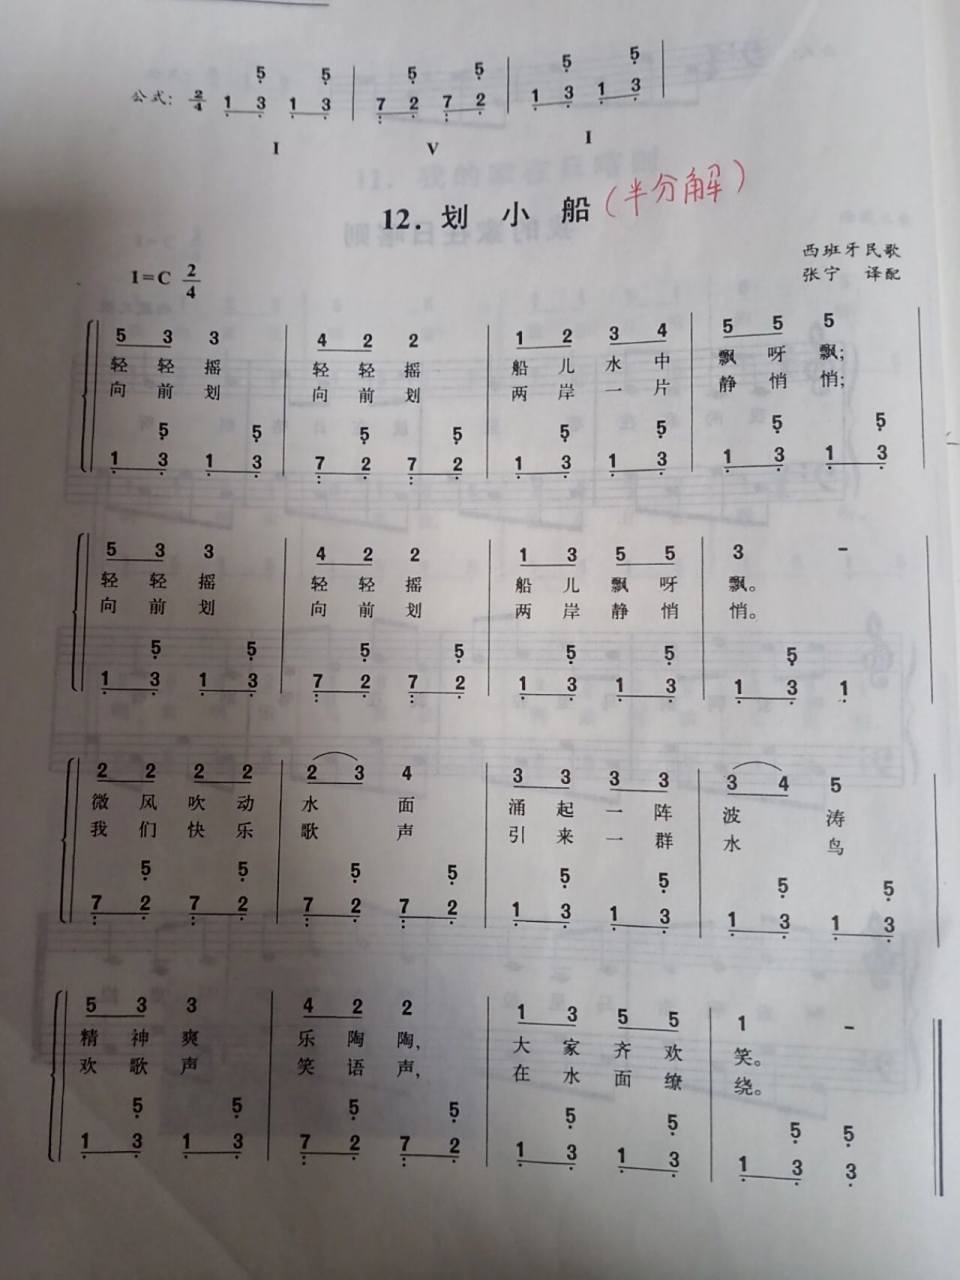 5 5 5 5 5 5
公式: 2/4 1 3 1 3 7 2 7 2 1 3 1 3
I V I
12. 划 小 船 (半分解)
西班牙民歌
1=C 2/4 张宁 译配
5 3 3 4 2 2 1 2 3 4 5 5 5
轻 轻 摇 轻 轻 摇 船 儿 水 中 飘 呀 飘;
向 前 划 向 前 划 两 岸 一 片 静 悄 悄;
5 5 5 5 5 5 5 5
1 3 1 3 7 2 7 2 1 3 1 3 1 3 1 3
5 3 3 4 2 2 1 3 5 5 3 -
轻 轻 摇 轻 轻 摇 船 儿 飘 呀 飘。
向 前 划 向 前 划 两 岸 静 悄 悄。
5 5 5 5 5 5 5
1 3 1 3 7 2 7 2 1 3 1 3 1 3 1
2 2 2 2 2 3 4 3 3 3 3 3 4 5
微 风 吹 动 水 面 涌 起 一 阵 波 涛
我 们 快 乐 歌 声 引 来 一 群 水 鸟
5 5 5 5 5 5 5 5
7 2 7 2 7 2 7 2 1 3 1 3 1 3 1 3
5 3 3 4 2 2 1 3 5 5 1 -
精 神 爽 乐 陶 陶, 大 家 齐 欢 笑。
欢 歌 声 笑 语 声, 在 水 面 缭 绕。
5 5 5 5 5 5 5 5
1 3 1 3 7 2 7 2 1 3 1 3 1 3 3